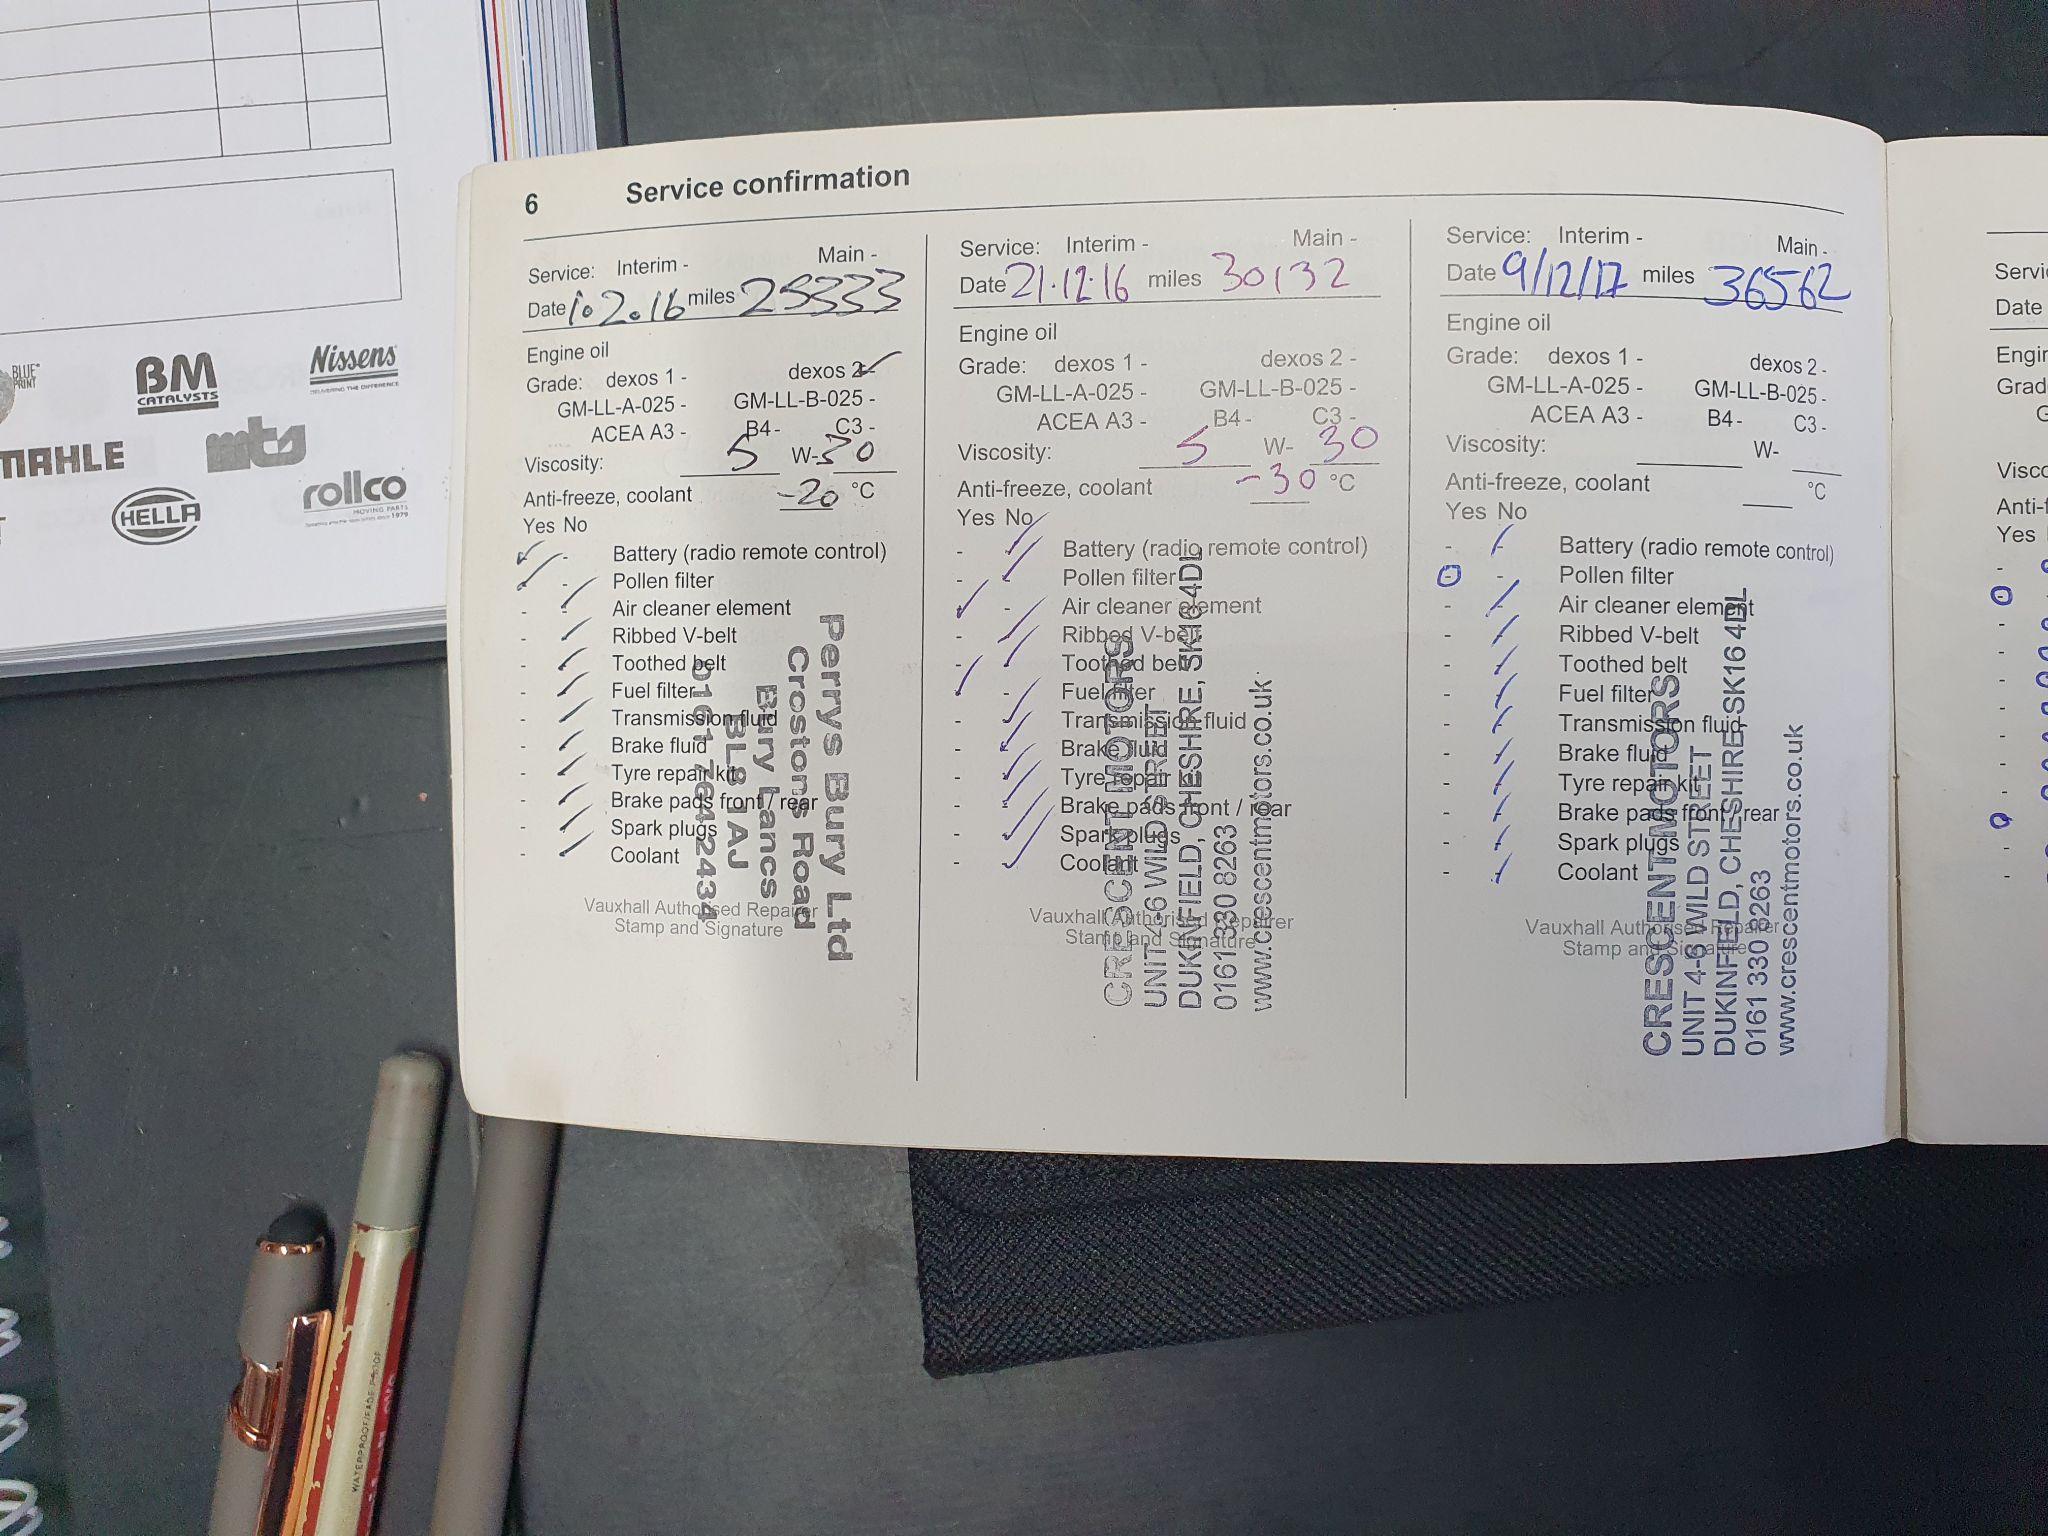 BLUE
PRINT
BM
CATALYSTS
Nissens
DELIVERING THE DIFFERENCE
MAHLE
mts
HELLA
rollco
MOVING PARTS
1979
6 Service confirmation
Service: Interim - Main -
Date 1.2.16 miles 25333
Engine oil
Grade: dexos 1 - dexos 2 -
GM-LL-A-025 - GM-LL-B-025 -
ACEA A3 - B4 - C3 -
Viscosity: 5 W- 30
Anti-freeze, coolant -20 °C
Yes No
- - Battery (radio remote control)
- - Pollen filter
- - Air cleaner element
- - Ribbed V-belt
- - Toothed belt
- - Fuel filter
- - Transmission fluid
- - Brake fluid
- - Tyre repair kit
- - Brake pads front / rear
- - Spark plugs
- - Coolant
Vauxhall Authorised Repairer
Stamp and Signature
Perrys Bury Ltd
Crostons Road
Bury Lancs
BL8 1AJ
0161 764 2434
Service: Interim - Main -
Date 21.12.16 miles 30132
Engine oil
Grade: dexos 1 - dexos 2 -
GM-LL-A-025 - GM-LL-B-025 -
ACEA A3 - B4 - C3 -
Viscosity: 5 W- 30
Anti-freeze, coolant -30 °C
Yes No
- - Battery (radio remote control)
- - Pollen filter
- - Air cleaner element
- - Ribbed V-belt
- - Toothed belt
- - Fuel filter
- - Transmission fluid
- - Brake fluid
- - Tyre repair kit
- - Brake pads front / rear
- - Spark plugs
- - Coolant
Vauxhall Authorised Repairer
Stamp and Signature
CRESCENT MOTORS
UNIT 4-6 WILD STREET
DUKINFIELD, CHESHIRE, SK16 4DL
0161 330 8263
www.crescentmotors.co.uk
Service: Interim - Main -
Date 9/12/17 miles 36562
Engine oil
Grade: dexos 1 - dexos 2 -
GM-LL-A-025 - GM-LL-B-025 -
ACEA A3 - B4 - C3 -
Viscosity: W-
Anti-freeze, coolant °C
Yes No
- - Battery (radio remote control)
- - Pollen filter
- - Air cleaner element
- - Ribbed V-belt
- - Toothed belt
- - Fuel filter
- - Transmission fluid
- - Brake fluid
- - Tyre repair kit
- - Brake pads front / rear
- - Spark plugs
- - Coolant
Vauxhall Authorised Repairer
Stamp and Signature
CRESCENT MOTORS
UNIT 4-6 WILD STREET
DUKINFIELD, CHESHIRE SK16 4DL
0161 330 8263
www.crescentmotors.co.uk
Servi
Date
Engin
Grad
G
Visco
Anti-f
Yes
WATERPROOF/FADE PROOF